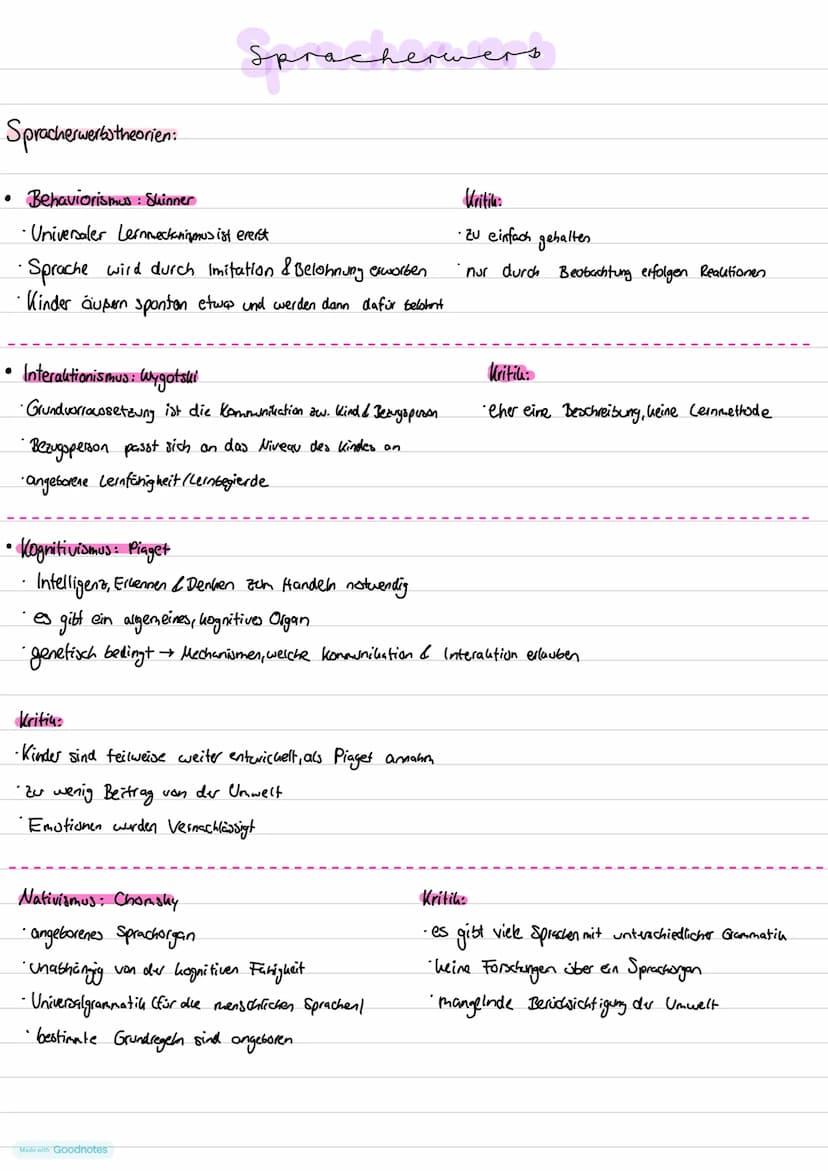 Spracherwerb
Spracherwerbstheorien:
• Behaviorismus: Skinner
· Universaler Lernmechanismus ist ererbt
· Sprache wird durch Imitation & Belohnung erworben
· Kinder äußern spontan etwas und werden dann dafür belohnt
Kritik:
· zu einfach gehalten
· nur durch Beobachtung erfolgen Reaktionen
• Interaktionismus: Wygotski
· Grundvorraussetzung ist die Kommunikation zw. Kind & Bezugsperson
· Bezugsperson passt sich an das Niveau des Kindes an
· angeborene Lernfähigkeit/Lernbegierde
Kritik:
· eher eine Beschreibung, keine Lernmethode
• Kognitivismus: Piaget
· Intelligenz, Erkennen & Denken zum Handeln notwendig
· es gibt ein allgemeines, kognitives Organ
· genetisch bedingt → Mechanismen, welche Kommunikation & Interaktion erlauben
Kritik:
· Kinder sind teilweise weiter entwickelt, als Piaget annahm
· zu wenig Beitrag von der Umwelt
· Emotionen werden vernachlässigt
Nativismus: Chomsky
· angeborenes Sprachorgan
· unabhängig von der kognitiven Fähigkeit
· Universalgrammatik (für die menschlichen Sprachen)
· bestimmte Grundregeln sind angeboren
Kritik:
· es gibt viele Sprachen mit unterschiedlicher Grammatik
· keine Forschungen über ein Sprachorgan
· mangelnde Berücksichtigung der Umwelt
Made with Goodnotes